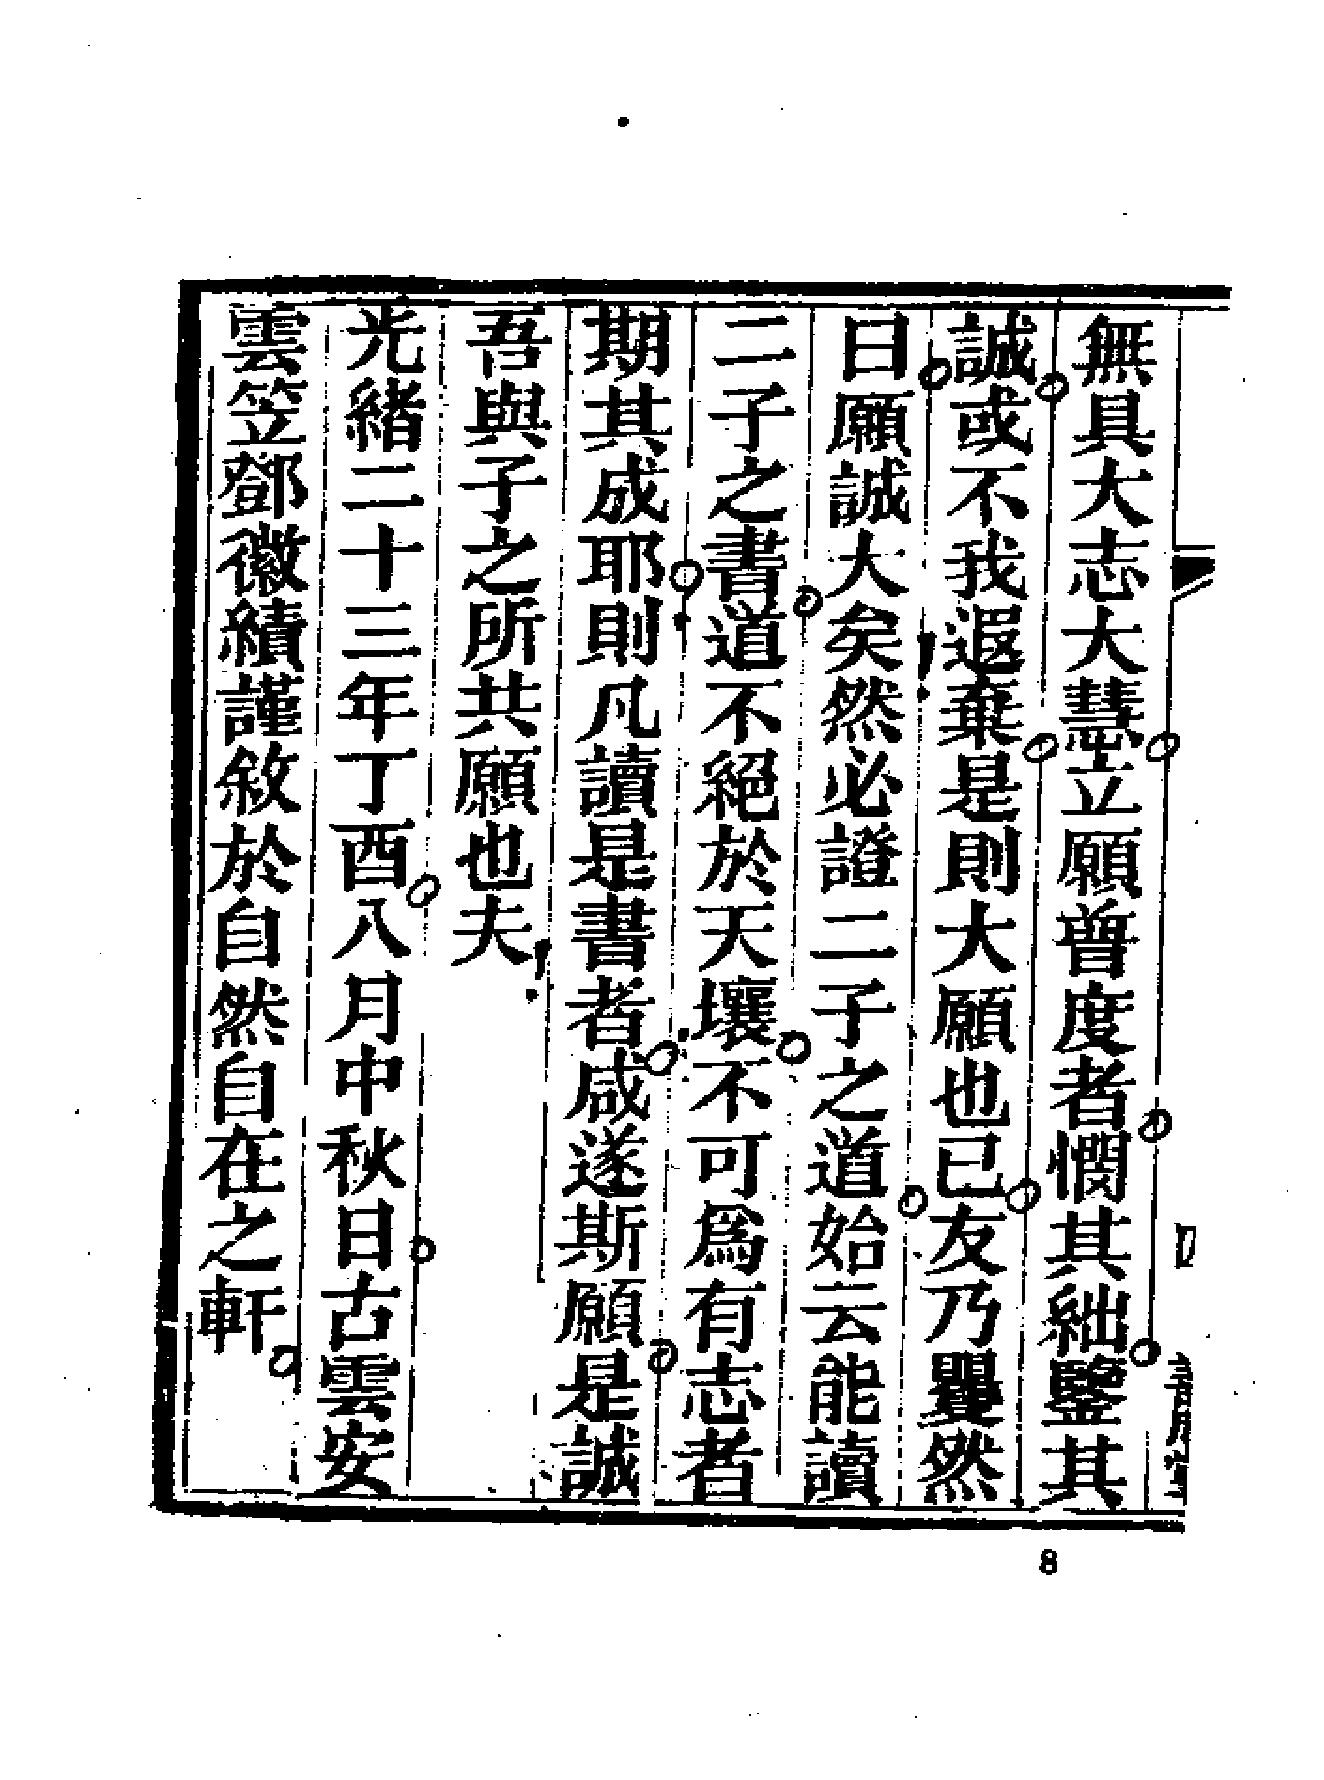 無具大志大慧立願曾度者憫其絀鑒其
誠或不我遐棄是則大願也已友乃矍然
曰願誠大矣然必證二子之道始云能讀
二子之書道不絕於天壤不可爲有志者
期其成耶則凡讀是書者咸遂斯願是誠
吾與子之所共願也夫
光緒二十三年丁酉八月中秋日古雲安
雲笠鄧徽績謹敘於自然自在之軒
8